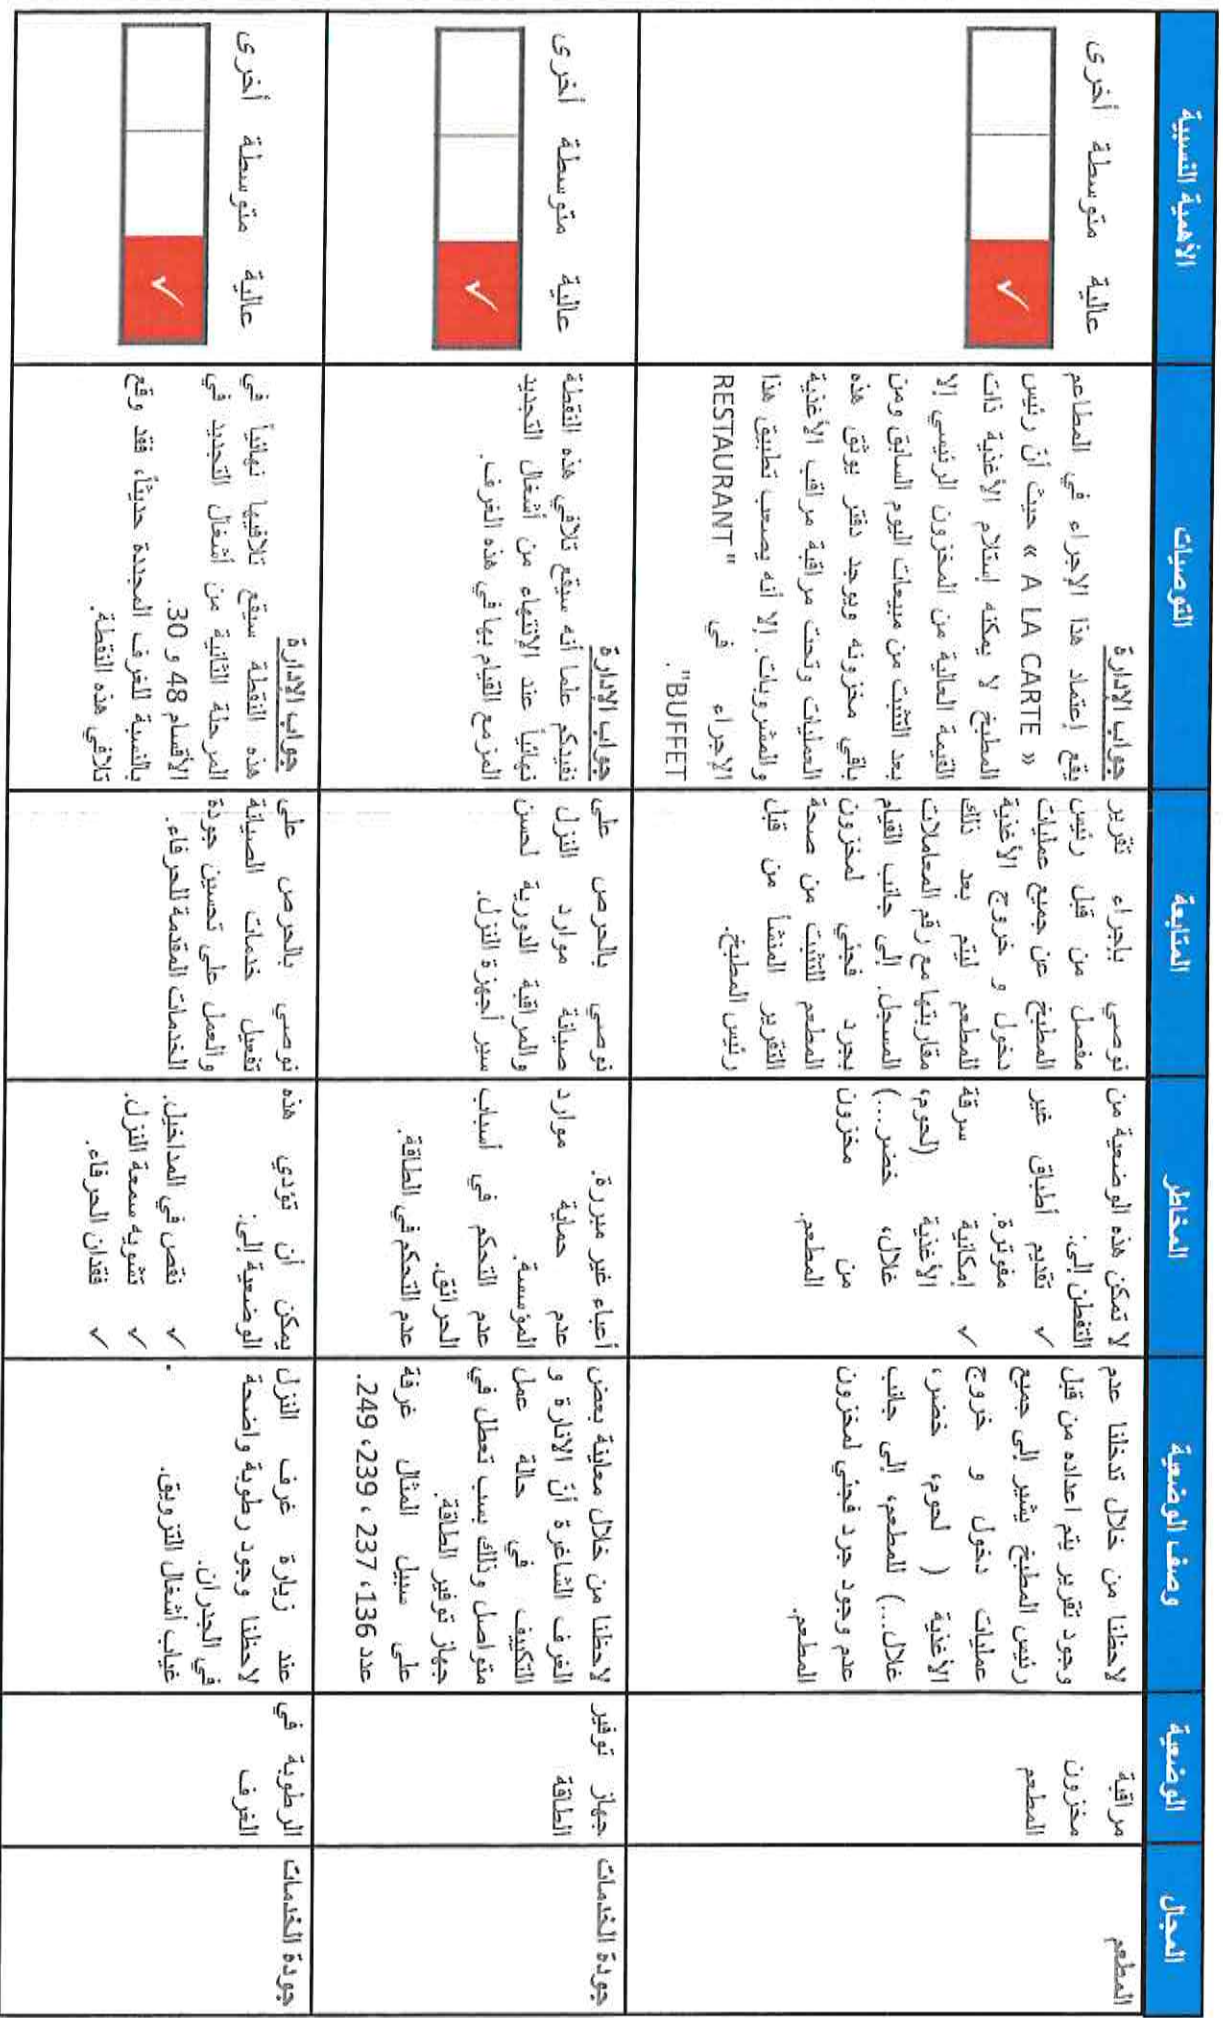 المجال
الوضعية
وصف الوضعية
المخاطر
المتابعة
التوصيات
الأهمية النسبية
المطعم
مراقبة
مخزون
المطعم
لاحظنا من خلال تدخلنا عدم
وجود تقرير يتم اعداده من قبل
رئيس المطبخ يشير إلى جميع
عمليات دخول و خروج
الأغذية ( لحوم، خضر،
غلال...) للمطعم، إلى جانب
عدم وجود جرد فجئي لمخزون
المطعم.
لا تمكن هذه الوضعية من
التفطن إلى:
✓ تقديم أطباق غير
مفوترة.
✓ إمكانية سرقة
الأغذية (لحوم،
غلال، خضر...)
من مخزون
المطعم.
نوصي بإجراء تقرير
مفصل من قبل رئيس
المطبخ عن جميع عمليات
دخول و خروج الأغذية
للمطعم ليتم بعد ذلك
مقاربتها مع رقم المعاملات
المسجل. إلى جانب القيام
بجرد فجئي لمخزون
المطعم للتثبت من صحة
التقرير المنشأ من قبل
رئيس المطبخ.
جواب الإدارة
يقع إعتماد هذا الإجراء في المطاعم
« A LA CARTE » حيث أنّ رئيس
المطبخ لا يمكنه إستلام الأغذية ذات
القيمة العالية من المخزون الرئيسي إلا
بعد التثبت من مبيعات اليوم السابق ومن
باقي مخزونه ويوجد دفتر يوثق هذه
العمليات وتحت مراقبة مراقب الأغذية
والمشروبات. إلا أنه يصعب تطبيق هذا
الإجراء في "RESTAURANT
BUFFET".
عالية متوسطة أخرى
✓
جودة الخدمات
جهاز توفير
الطاقة
لاحظنا من خلال معاينة بعض
الغرف الشاغرة أنّ الانارة و
التكييف في حالة عمل
متواصل وذلك بسب تعطل في
جهاز توفير الطاقة.
على سبيل المثال غرفة
عدد 136، 237، 239، 249.
أعباء غير مبررة.
عدم حماية موارد
المؤسسة.
عدم التحكم في أسباب
الحرائق.
عدم التحكم في الطاقة.
نوصي بالحرص على
صيانة موارد النزل
والمراقبة الدورية لحسن
سير أجهزة النزل.
جواب الإدارة
نفيدكم علما أنه سيقع تلافي هذه النقطة
نهائياً عند الإنتهاء من أشغال التجديد
المزمع القيام بها في هذه الغرف.
عالية متوسطة أخرى
✓
جودة الخدمات
الرطوبة في
الغرف
عند زيارة غرف النزل
لاحظنا وجود رطوبة واضحة
في الجدران.
غياب أشغال التزويق.
.
يمكن أن تؤدي هذه
الوضعية إلى:
✓ نقص في المداخيل.
✓ تشويه سمعة النزل.
✓ فقدان الحرفاء.
نوصي بالحرص على
تفعيل خدمات الصيانة
والعمل على تحسين جودة
الخدمات المقدمة للحرفاء.
جواب الإدارة
هذه النقطة سيقع تلافيها نهائياً في
المرحلة الثانية من أشغال التجديد في
الأقسام 48 و 30.
بالنسبة للغرف المجددة حديثاً، فقد وقع
تلافي هذه النقطة.
عالية متوسطة أخرى
✓